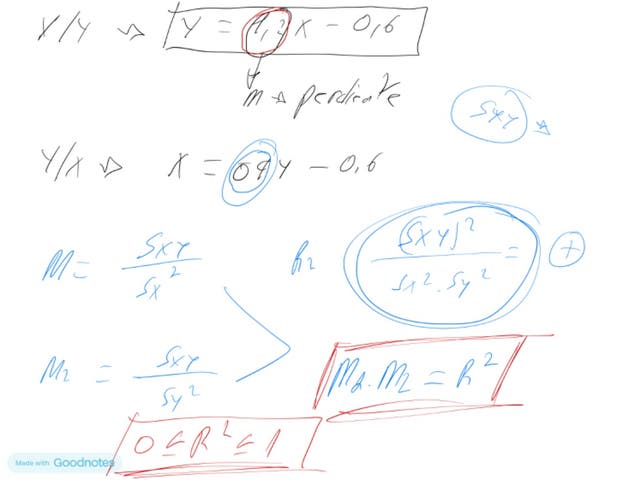 X/Y ⇝ Y = 1,2 X − 0,6
m → pendiente
Sxy →
Y/X ⇝ X = 0,4 Y − 0,6
M = Sxy / Sx²
R² (Sxy)² / Sx² · Sy² = +
M2 = Sxy / Sy²
M1 · M2 = R²
0 ≤ R² ≤ 1
Made with Goodnotes